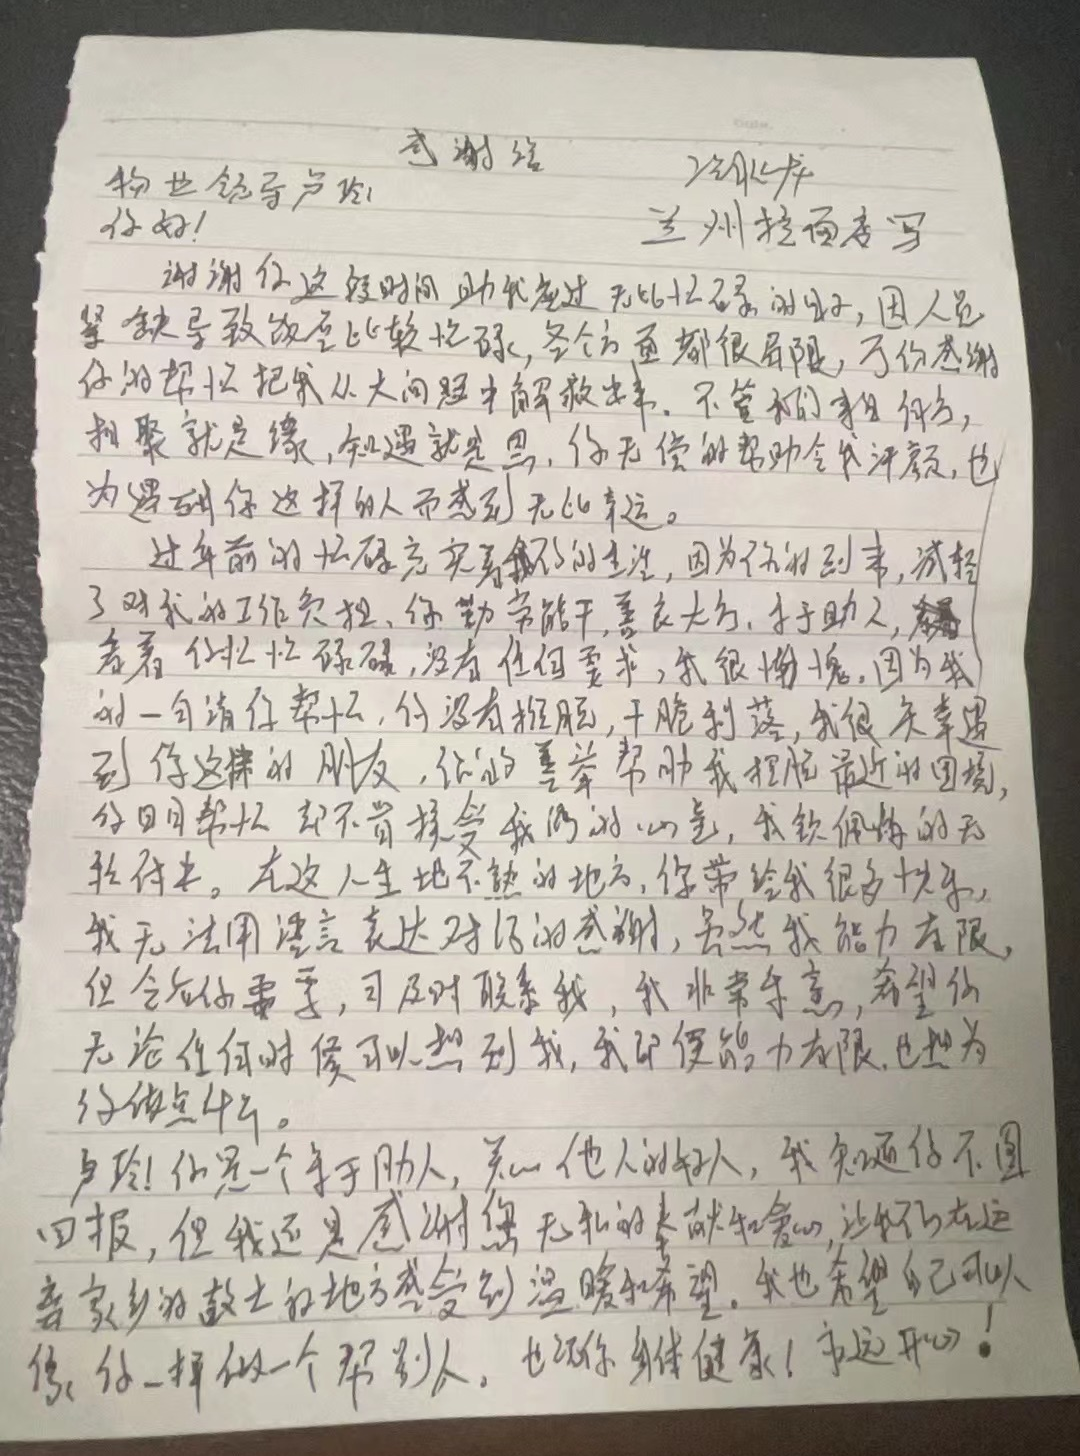 感谢信
物业领导卢玲!
你好!
兰州拉面店写
谢谢你这段时间助我度过无比忙碌的日子,因人员
紧缺导致饭店比较忙碌,各个方面都很局限,万份感谢
你的帮忙把我从大问题中解救出来.不管我们来自何方,
相聚就是缘,知遇就是恩,你无偿的帮助令我汗颜,也
为遇到你这样的人而感到无比幸运。
过年前的忙碌充实着的生活,因为你的到来,减轻
了对我的工作负担、你勤劳能干,善良大方、乐于助人,
看着你忙忙碌碌,没有任何要求,我很惭愧.因为我
的一句请你帮忙,你没有推脱,干脆利落,我很荣幸遇
到你这样的朋友,你的善举帮助我摆脱最近的困境,
你日日帮忙却不肯接受我的心意,我钦佩你的无
私付出。在这人生地不熟的地方,你带给我很多快乐,
我无法用语言表达对你的感谢,虽然我能力有限,
但会你需要,可及时联系我,我非常乐意,希望你
无论任何时候可以想到我,我即便能力有限.也想为
你做点什么。
卢玲!你是一个乐于助人,关心他人的好人,我知道你不图
回报,但我还是感谢您无私的奉献和爱心,让我们在远
离家乡的故土的地方感受到温暖和希望.我也希望自己可以
像你一样做一个帮别人.也祝你身体健康!永远开心!